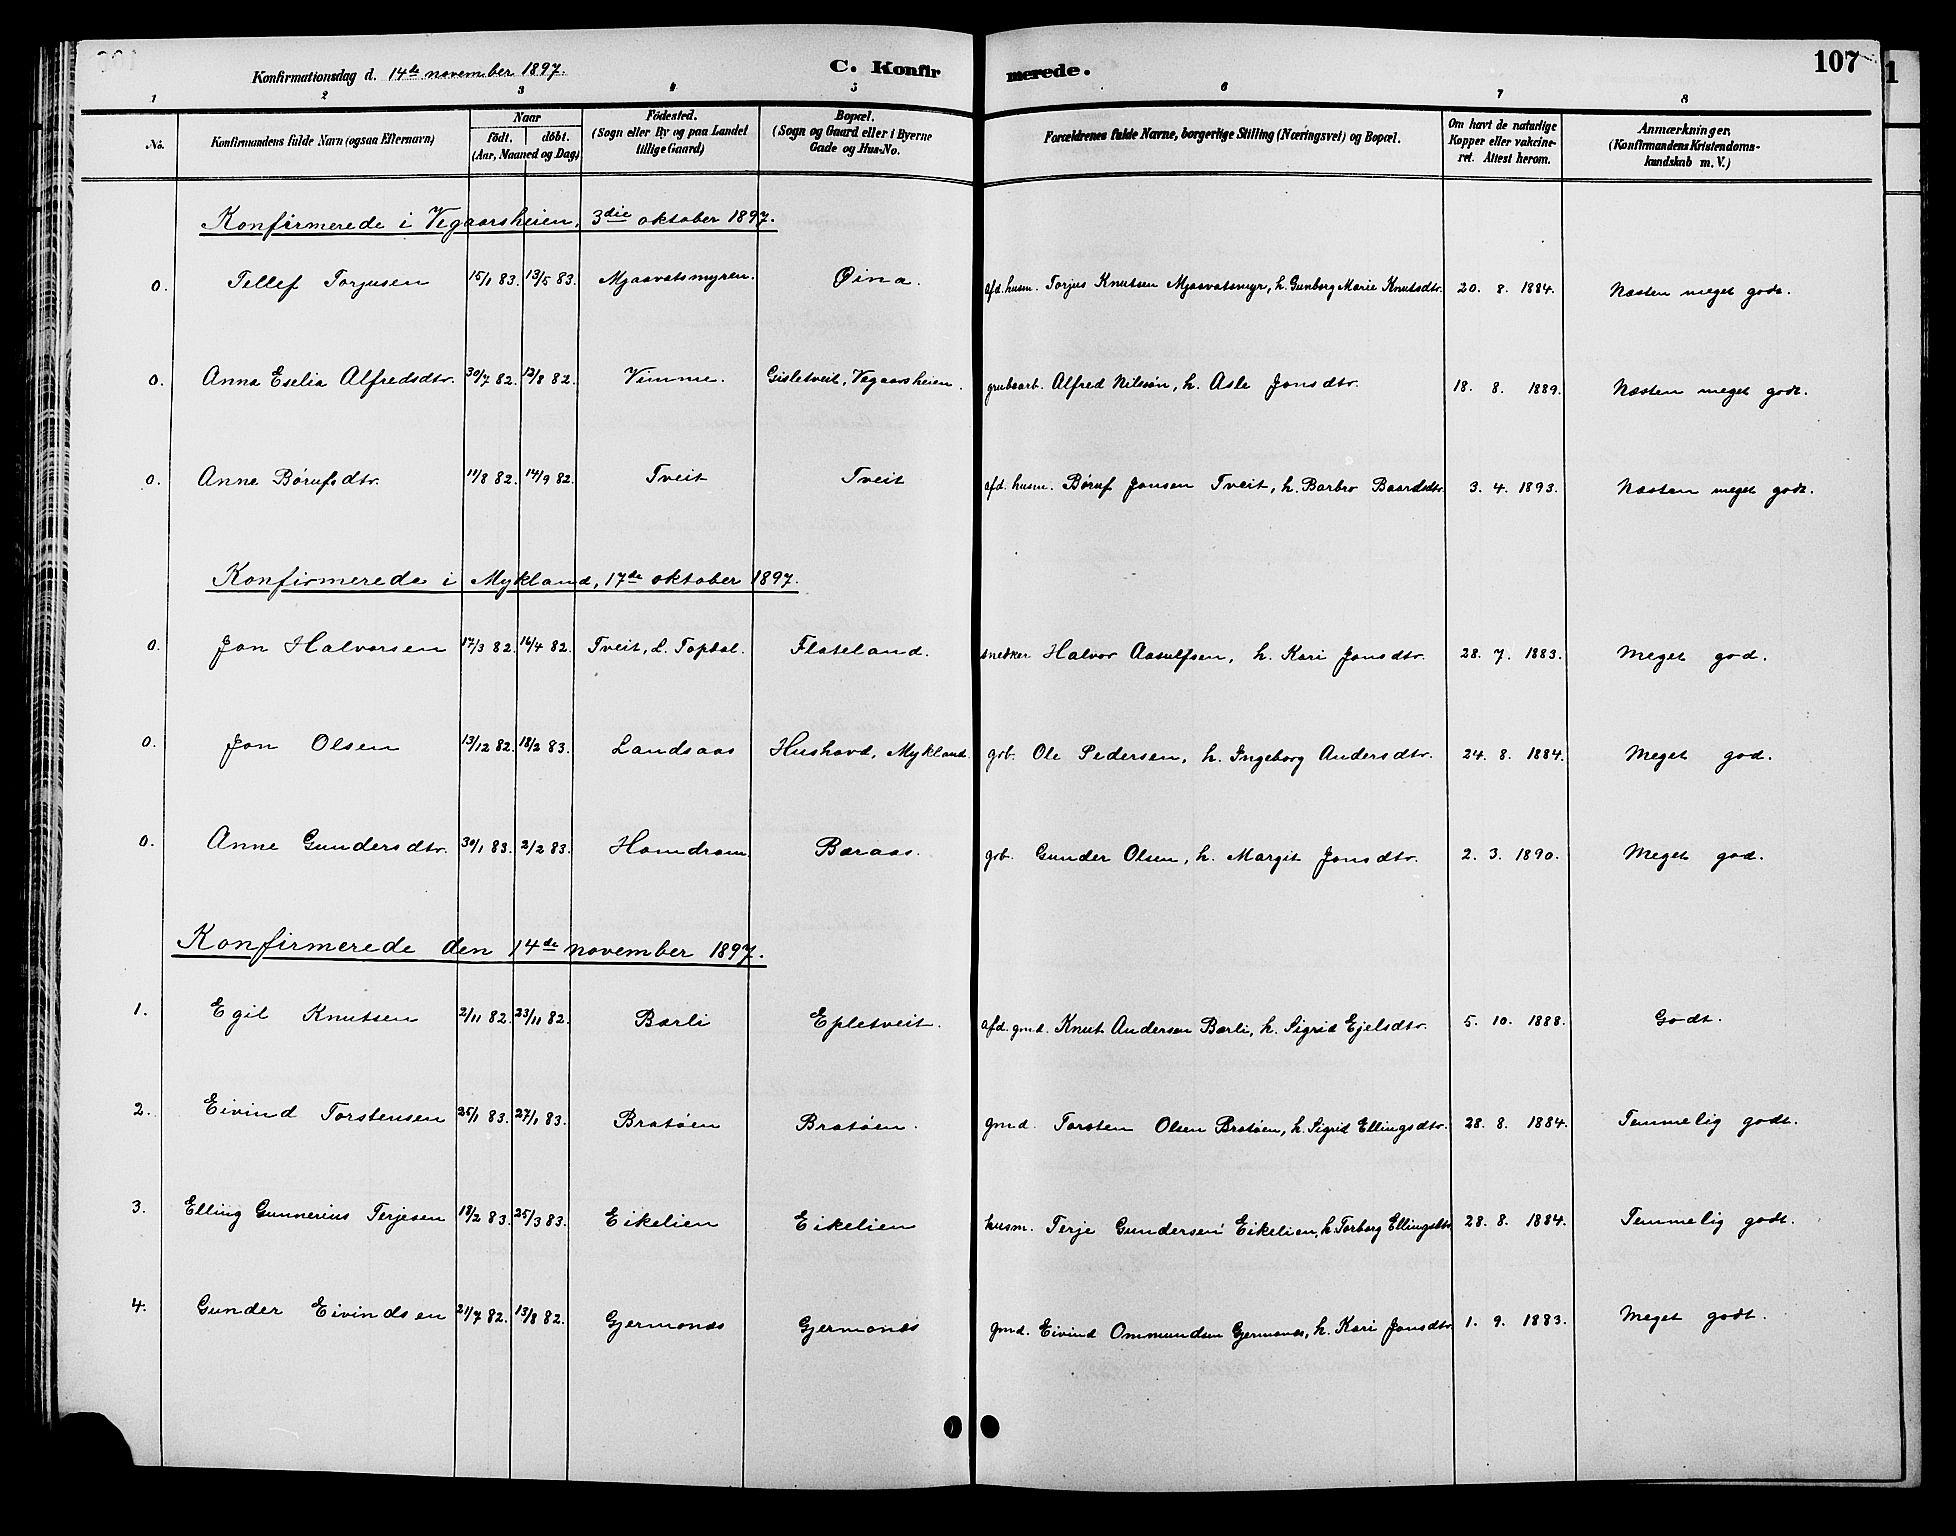 Konfirmationsdag d. 14de november 1897. C. Konfirmerede. 107
1 2 3 4 5 6 7 8
No. Konfirmandens fulde Navn (ogsaa Efternavn) Naar födt. döbt. (Aar, Maaned og Dag) Födested. (Sogn eller By og paa Landet tillige Gaard) Bopæl. (Sogn og Gaard eller i Byerne Gade og Hus-No. Forældrenes fulde Navne, borgerlige Stilling (Næringsvei) og Bopæl. Om havt de naturlige Kopper eller vakcineret. Attest herom. Anmærkninger. (Konfirmandens Kristendomskundskab m. V.)
Konfirmerede i Vegaarsheien, 3die oktober 1897.
0. Tellef Torjusen 15/1 83. 13/5 83. Mjaavatsmyren. Øina. afd. husm. Torjus Knutsen Mjaavatsmyr, h. Gunborg Marie Knutsdtr. 20. 8. 1884. Næsten meget godt.
0. Anna Eselia Alfredsdtr. 30/7 82. 12/8 82. Vimme. Gisletveit, Vegaarsheien. grubearb. Alfred Nilsson, h. Asle Jonsdtr. 18. 8. 1889. Næsten meget godt.
0. Anne Børufsdtr. 11/8 82. 14/9 82. Tveit Tveit afd. husm. Børuf Jonsen Tveit, h. Barbro Baardsdtr. 3. 4. 1893. Næsten meget godt.
Konfirmerede i Mykland, 17de oktober 1897.
0. Jon Halvorsen 17/3 82. 16/4 82. Tveit, L. Topdal. Flateland. snedker Halvor Aasulfsen, h. Kari Jonsdtr. 28. 7. 1883. Meget god.
0. Jon Olsen 13/12 82. 18/2 83. Landsaas Hushovd, Mykland. grb. Ole Pedersen, h. Ingeborg Andersdtr. 24. 8. 1884. Meget god.
0. Anne Gundersdtr. 30/1 83. 2/2 83. Homdrom. Bæraas. grb. Gunder Olsen, h. Margit Jonsdtr. 2. 3. 1890. Meget god.
Konfirmerede den 14de november 1897.
1. Egil Knutsen 2/11 82. 23/11 82. Bærli Epletveit. afd. gmd. Knut Andersen Bærli, h. Sigrid Ejelsdtr. 5. 10. 1888. Godt.
2. Eivind Torstensen 25/1 83. 27/1 83. Bratøen Bratøen. gmd. Torsten Olsen Bratøen, h. Sigrid Ellingsdtr. 28. 8. 1884. Temmelig godt.
3. Elling Gunnerius Terjesen 18/2 83. 25/3 83. Eikelien Eikelien husm. Terje Gundersen Eikelien, h. Torborg Ellingsdtr. 28. 8. 1884. Temmelig godt.
4. Gunder Eivindsen 21/7 82. 13/8 82. Gjermonæs Gjermonæs gmd. Eivind Ommundsen Gjermonæs, h. Kari Jonsdtr. 1. 9. 1883. Meget godt.